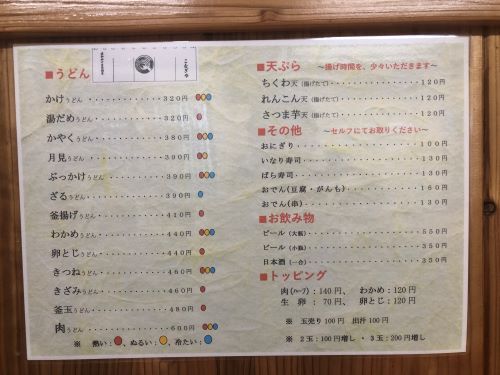 こんぴや
■うどん
かけうどん・・・・・・・・・・・320円
湯だめうどん・・・・・・・・・320円
かやくうどん・・・・・・・・・380円
月見うどん・・・・・・・・・・・390円
ぶっかけうどん・・・・・・・390円
ざるうどん・・・・・・・・・・・390円
釜揚げうどん・・・・・・・・・410円
わかめうどん・・・・・・・・・440円
卵とじうどん・・・・・・・・・440円
きつねうどん・・・・・・・・・460円
きざみうどん・・・・・・・・・460円
釜玉うどん・・・・・・・・・・・480円
肉うどん・・・・・・・・・・・・・600円
※ 熱い：、ぬるい：、冷たい：
■天ぷら ～揚げ時間を、少々いただきます～
ちくわ天（揚げたて）・・・・・・・・・・120円
れんこん天（揚げたて）・・・・・・・・120円
さつま芋天（揚げたて）・・・・・・・・120円
■その他 ～セルフにてお取りください～
おにぎり・・・・・・・・・・・・・・・・100円
いなり寿司・・・・・・・・・・・・・・130円
ばら寿司・・・・・・・・・・・・・・・・130円
おでん(豆腐・がんも)・・・・・・160円
おでん(串)・・・・・・・・・・・・・・130円
■お飲み物
ビール（大瓶）・・・・・・・・・・・・550円
ビール（小瓶）・・・・・・・・・・・・350円
日本酒（一合）・・・・・・・・・・・・350円
■トッピング
肉(ハーフ)：140円、 わかめ：120円
生 卵 ： 70円、 卵とじ：120円
※ 玉売り100円 出汁100円
※ 2玉：100円増し ・ 3玉：200円増し